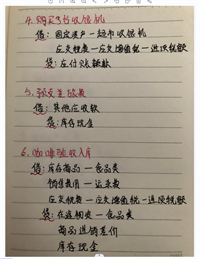 4. 购买3台收银机
借: 固定资产—超市收银机
应交税费—应交增值税—进项税额
贷: 应付账款
5. 预支差旅费
借: 其他应收款
贷: 库存现金
6. 咖啡验收入库
借: 库存商品—食品类
销售费用—运杂费
应交税费—应交增值税—进项税额
贷: 在途物资—食品类
商品进销差价
库存现金